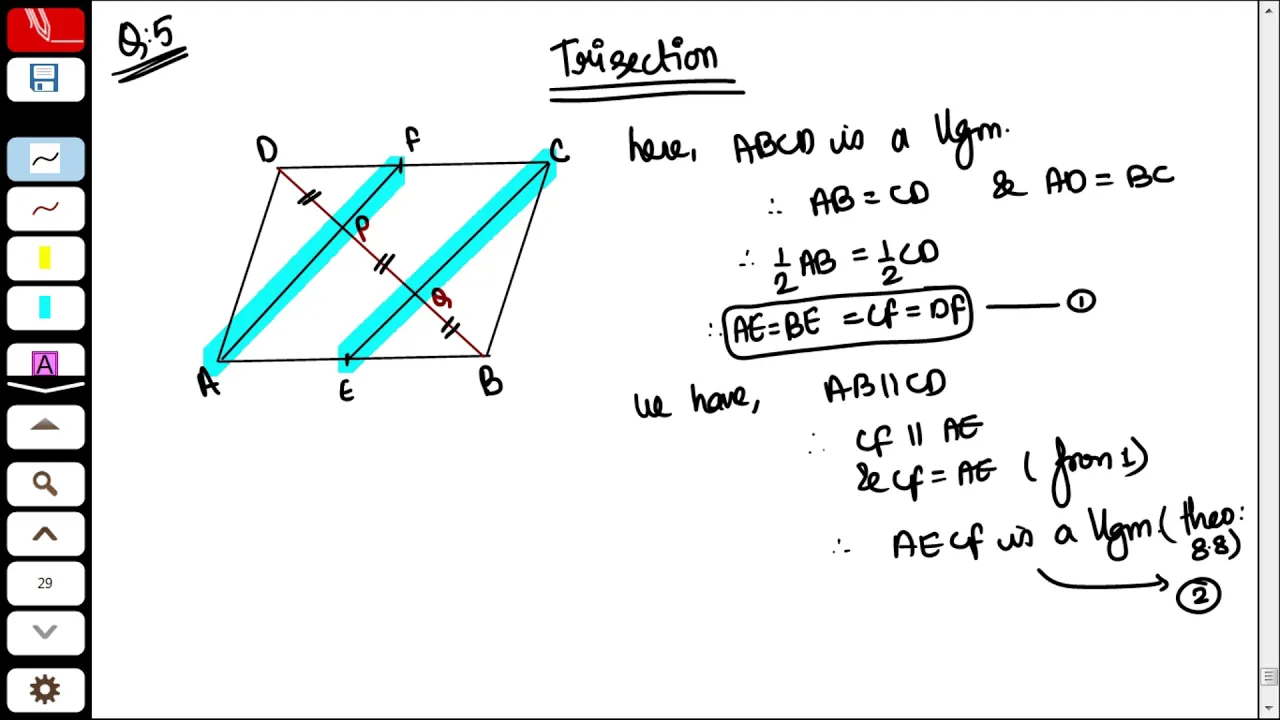 Q:5
Trisection
D F C
P
Q
A E B
here, ABCD is a llgm.
∴ AB = CD & AD = BC
∴ 1/2 AB = 1/2 CD
∴ AE = BE = CF = DF —— ①
we have, AB || CD
∴ CF || AE
& CF = AE ( from 1)
∴ AECF is a llgm. (theo: 8.8)
②
A
29